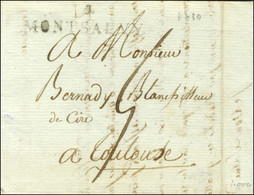 MONTSALVY
A Monsieur
Bernady Blanchisseur
de Cire
a Toulouse